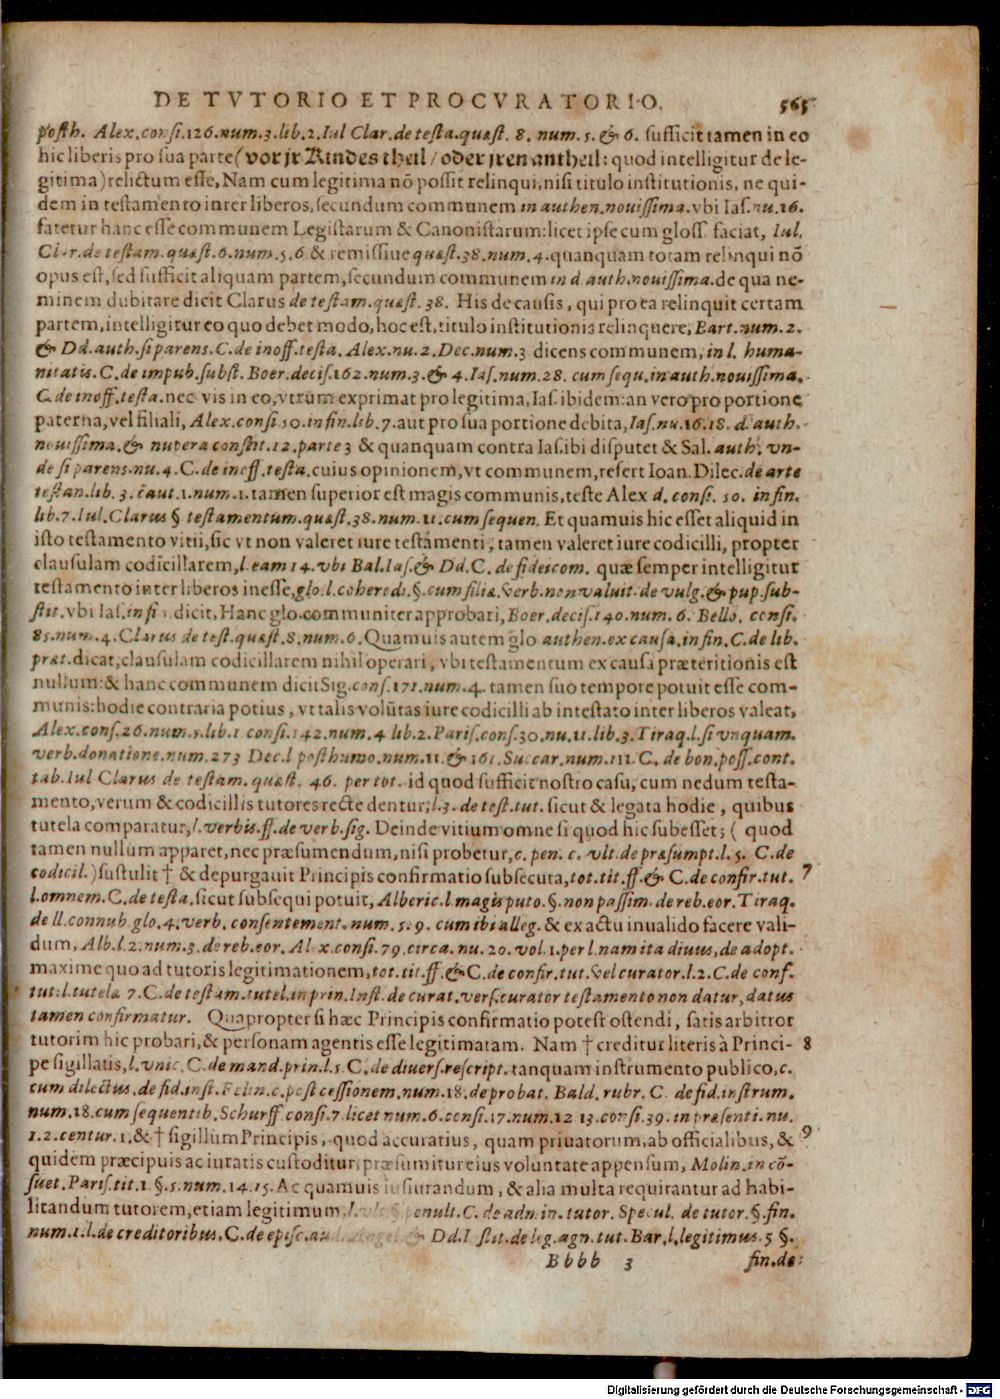 DE TVTORIO ET PROCVRATORIO. 565
posth. Alex. consi. 126. num. 3. lib. 2. Iul Clar. de testa. quæst. 8. num. 5. & 6. sufficit tamen in eo
hic liberis pro sua parte (vor jr Kindestheil / oder jren antheil: quod intelligitur de le-
gitima) relictum esse, Nam cum legitima nō possit relinqui, nisi titulo institutionis, ne qui-
dem in testamento inter liberos, secundum communem in authen. nouissima. vbi Ias. nu. 16.
fatetur hanc esse communem Legistarum & Canonistarum: licet ipse cum gloss. faciat, Iul.
Clar. de testam. quæst. 6. num. 5. 6. & remissiue quæst. 38. num. 4. quanquam totam relinqui nō
opus est, sed sufficit aliquam partem, secundum communem in d. auth. nouissima. de qua ne-
minem dubitare dicit Clarus de testam. quæst. 38. His de causis, qui pro ea relinquit certam
partem, intelligitur eo quo debet modo, hoc est, titulo institutionis relinquere, Bart. num. 2.
& Dd. auth. si parens. C. de inoff. testa. Alex. nu. 2. Dec. num. 3 dicens communem, in l. huma-
nitatis. C. de impub. subst. Boer. decis. 162. num. 3. & 4. Ias. num. 28. cum sequ. in auth. nouissima.
C. de inoff. testa. nec vis in eo, vtrùm exprimat pro legitima, Ias. ibidem: an vero pro portione
paterna, vel filiali, Alex. consi 50. in fin. lib. 7. aut pro sua portione debita, Ias. nu. 16. 18. d. auth.
nouissima. & nupera constit. 12. parte 3 & quanquam contra Ias. ibi disputet & Sal. auth. vn-
de si parens. nu. 4. C. de inoff. testa. cuius opinionem, vt communem, refert Ioan. Dilec. de arte
testan. lib. 3. caut. 1. num. 1. tamen superior est magis communis, teste Alex d. consi. 50. in fin.
lib. 7. Iul. Clarus § testamentum. quæst. 38. num. 11. cum sequen. Et quamuis hic esset aliquid in
isto testamento vitii, sic vt non valeret iure testamenti, tamen valeret iure codicilli, propter
clausulam codicillarem, l. eam 14. vbi Bal. Ias. & Dd. C. de fideicom. quæ semper intelligitur
testamento inter liberos inesse, glo. l. coheredi. §. cum filiæ. verb. non valuit. de vulg. & pup. sub-
stit. vbi Ias. in fi. dicit, Hanc glo. communiter approbari, Boer. decis. 240. num. 6. Bello. consi.
85. num. 4. Clarus de test. quæst. 8. num. 6. Quamuis autem glo authen. ex causa. in fin. C. de lib.
præt. dicat, clausulam codicillarem nihil operari, vbi testamentum ex causa præteritionis est
nullum: & hanc communem dicit Sig. cons. 171. num. 4. tamen suo tempore potuit esse com-
munis: hodie contraria potius, vt talis volūtas iure codicilli ab intestato inter liberos valeat,
Alex. cons. 26. num. 5. lib. 1 consi. 142. num. 4 lib. 2. Paris. cons. 30. nu. 11. lib. 3. Tiraq. l. si vnquam.
verb. donatione. num. 273 Dec. l posthumo. num. 11. & 161. Succar. num. 111. C. de bon. poss. cont.
tab. Iul Clarus de testam. quæst. 46. per tot. id quod sufficit nostro casu, cum nedum testa-
mento, verum & codicillis tutores recte dentur, l. 3. de test. tut. sicut & legata hodie, quibus
tutela comparatur, l. verbis. ff. de verb. sig. Deinde vitium omne si quod hic subesset; ( quod
tamen nullum apparet, nec præsumendum, nisi probetur, c. pen. c. vlt. de præsumpt. l. 5. C. de
codicil.) sustulit † & depurgauit Principis confirmatio subsecuta, tot. tit. ff. & C. de confir. tut. 7
l. omnem. C. de testa. sicut subsequi potuit, Alberic. l. magis puto. §. non passim. de reb. eor. Tiraq.
de ll. connub. glo. 4. verb. consentement. num. 5. 9. cum ibi alleg. & ex actu inualido facere vali-
dum, Alb. l. 2. num. 3. de reb. eor. Alex. consi. 79. circa. nu. 20. vol. 1. per l. nam ita diuus, de adopt.
maxime quo ad tutoris legitimationem, tot. tit. ff. & C. de confir. tut. vel curator. l. 2. C. de conf.
tut. l. tutelæ 7. C. de testam. tutel. in prin. Inst. de curat. vers. curator testamento non datur, datus
tamen confirmatur. Quapropter si hæc Principis confirmatio potest ostendi, satis arbitror
tutorim hic probari, & personam agentis esse legitimatam. Nam † creditur literis à Princi- 8
pe sigillatis, l. vnic. C. de mand. prin. l. 5. C. de diuers. rescript. tanquam instrumento publico, c.
cum dilectus. de fid. inst. Felin. c. post cessionem. num. 18. de probat. Bald. rubr. C. de fid. instrum.
num. 18. cum sequentib. Schurff. consi. 7. licet num. 6. consi. 17. num. 12 13. consi. 39. in præsenti. nu.
1. 2. centur. 1. & † sigillùm Principis, quod accuratius, quam priuatorum, ab officialibus, & 9
quidem præcipuis ac iuratis custoditur, præsumitur eius voluntate appensum, Molin. in cō-
suet. Paris. tit. 1 §. 5. num. 14. 15. Ac quamuis iusiurandum, & alia multa requirantur ad habi-
litandum tutorem, etiam legitimum, l. vlt. § penult. C. de admin. tutor. Specul. de tutor. §. fin.
num. 1. l. de creditoribus. C. de episc. aud. Angel. & Dd. Instit. de leg. agn. tut. Bar. l. legitimus. 5 §.
Bbbb 3 fin. de
Digitalisierung gefördert durch die Deutsche Forschungsgemeinschaft - DFG